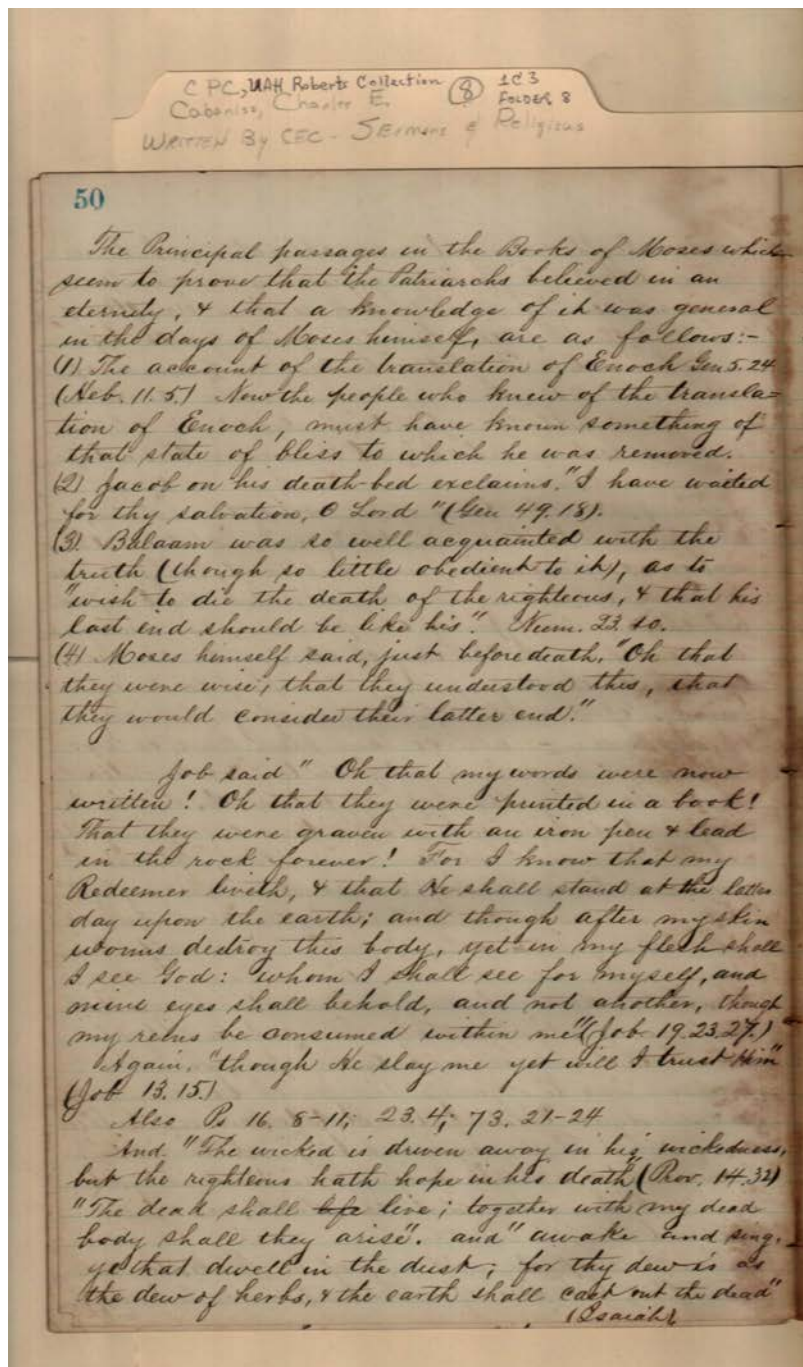 C PC, UAH Roberts Collection (8) 1C3
Cabaniss, Charles E. FOLDER 8
WRITTEN By CEC - Sermons & Religious
50
The Principal passages in the Books of Moses which
seem to prove that the Patriarchs believed in an
eternity, & that a knowledge of it was general
in the days of Moses himself, are as follows:-
(1) The account of the translation of Enoch Gen 5.24
(Heb. 11.5.) Now the people who knew of the transla=
tion of Enoch, must have known something of
that state of bliss to which he was removed.
(2) Jacob on his death-bed exclaims. "I have waited
for thy salvation, O Lord" (Gen 49.18).
(3). Balaam was so well acquainted with the
truth (though so little obedient to it), as to
"wish to die the death of the righteous, & that his
last end should be like his". Num. 23.10.
(4) Moses himself said, just before death. "Oh that
they were wise, that they understood this, that
they would consider their latter end."
Job said " Oh that my words were now
written! Oh that they were printed in a book!
That they were graven with an iron pen & lead
in the rock forever! For I know that my
Redeemer liveth, & that He shall stand at the latter
day upon the earth; and though after my skin
worms destroy this body, yet in my flesh shall
I see God: whom I shall see for myself, and
mine eyes shall behold, and not another, though
my reins be consumed within me" (Job 19.23.27.)
Again. "though He slay me yet will I trust Him"
(Job 13.15.)
Also Ps 16. 8-11; 23.4; 73. 21-24
And. "The wicked is driven away in his wickedness,
but the righteous hath hope in his death" (Prov. 14.32)
"The dead shall life live; together with my dead
body shall they arise". and "awake and sing.
ye that dwell in the dust; for thy dew is as
the dew of herbs, & the earth shall cast out the dead"
(Isaiah)